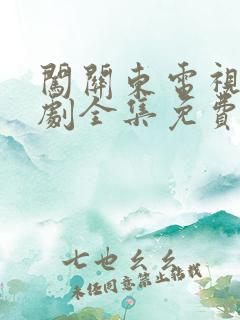 闖關東電視
劇全集免費
七也幺幺
未经同意禁止转载